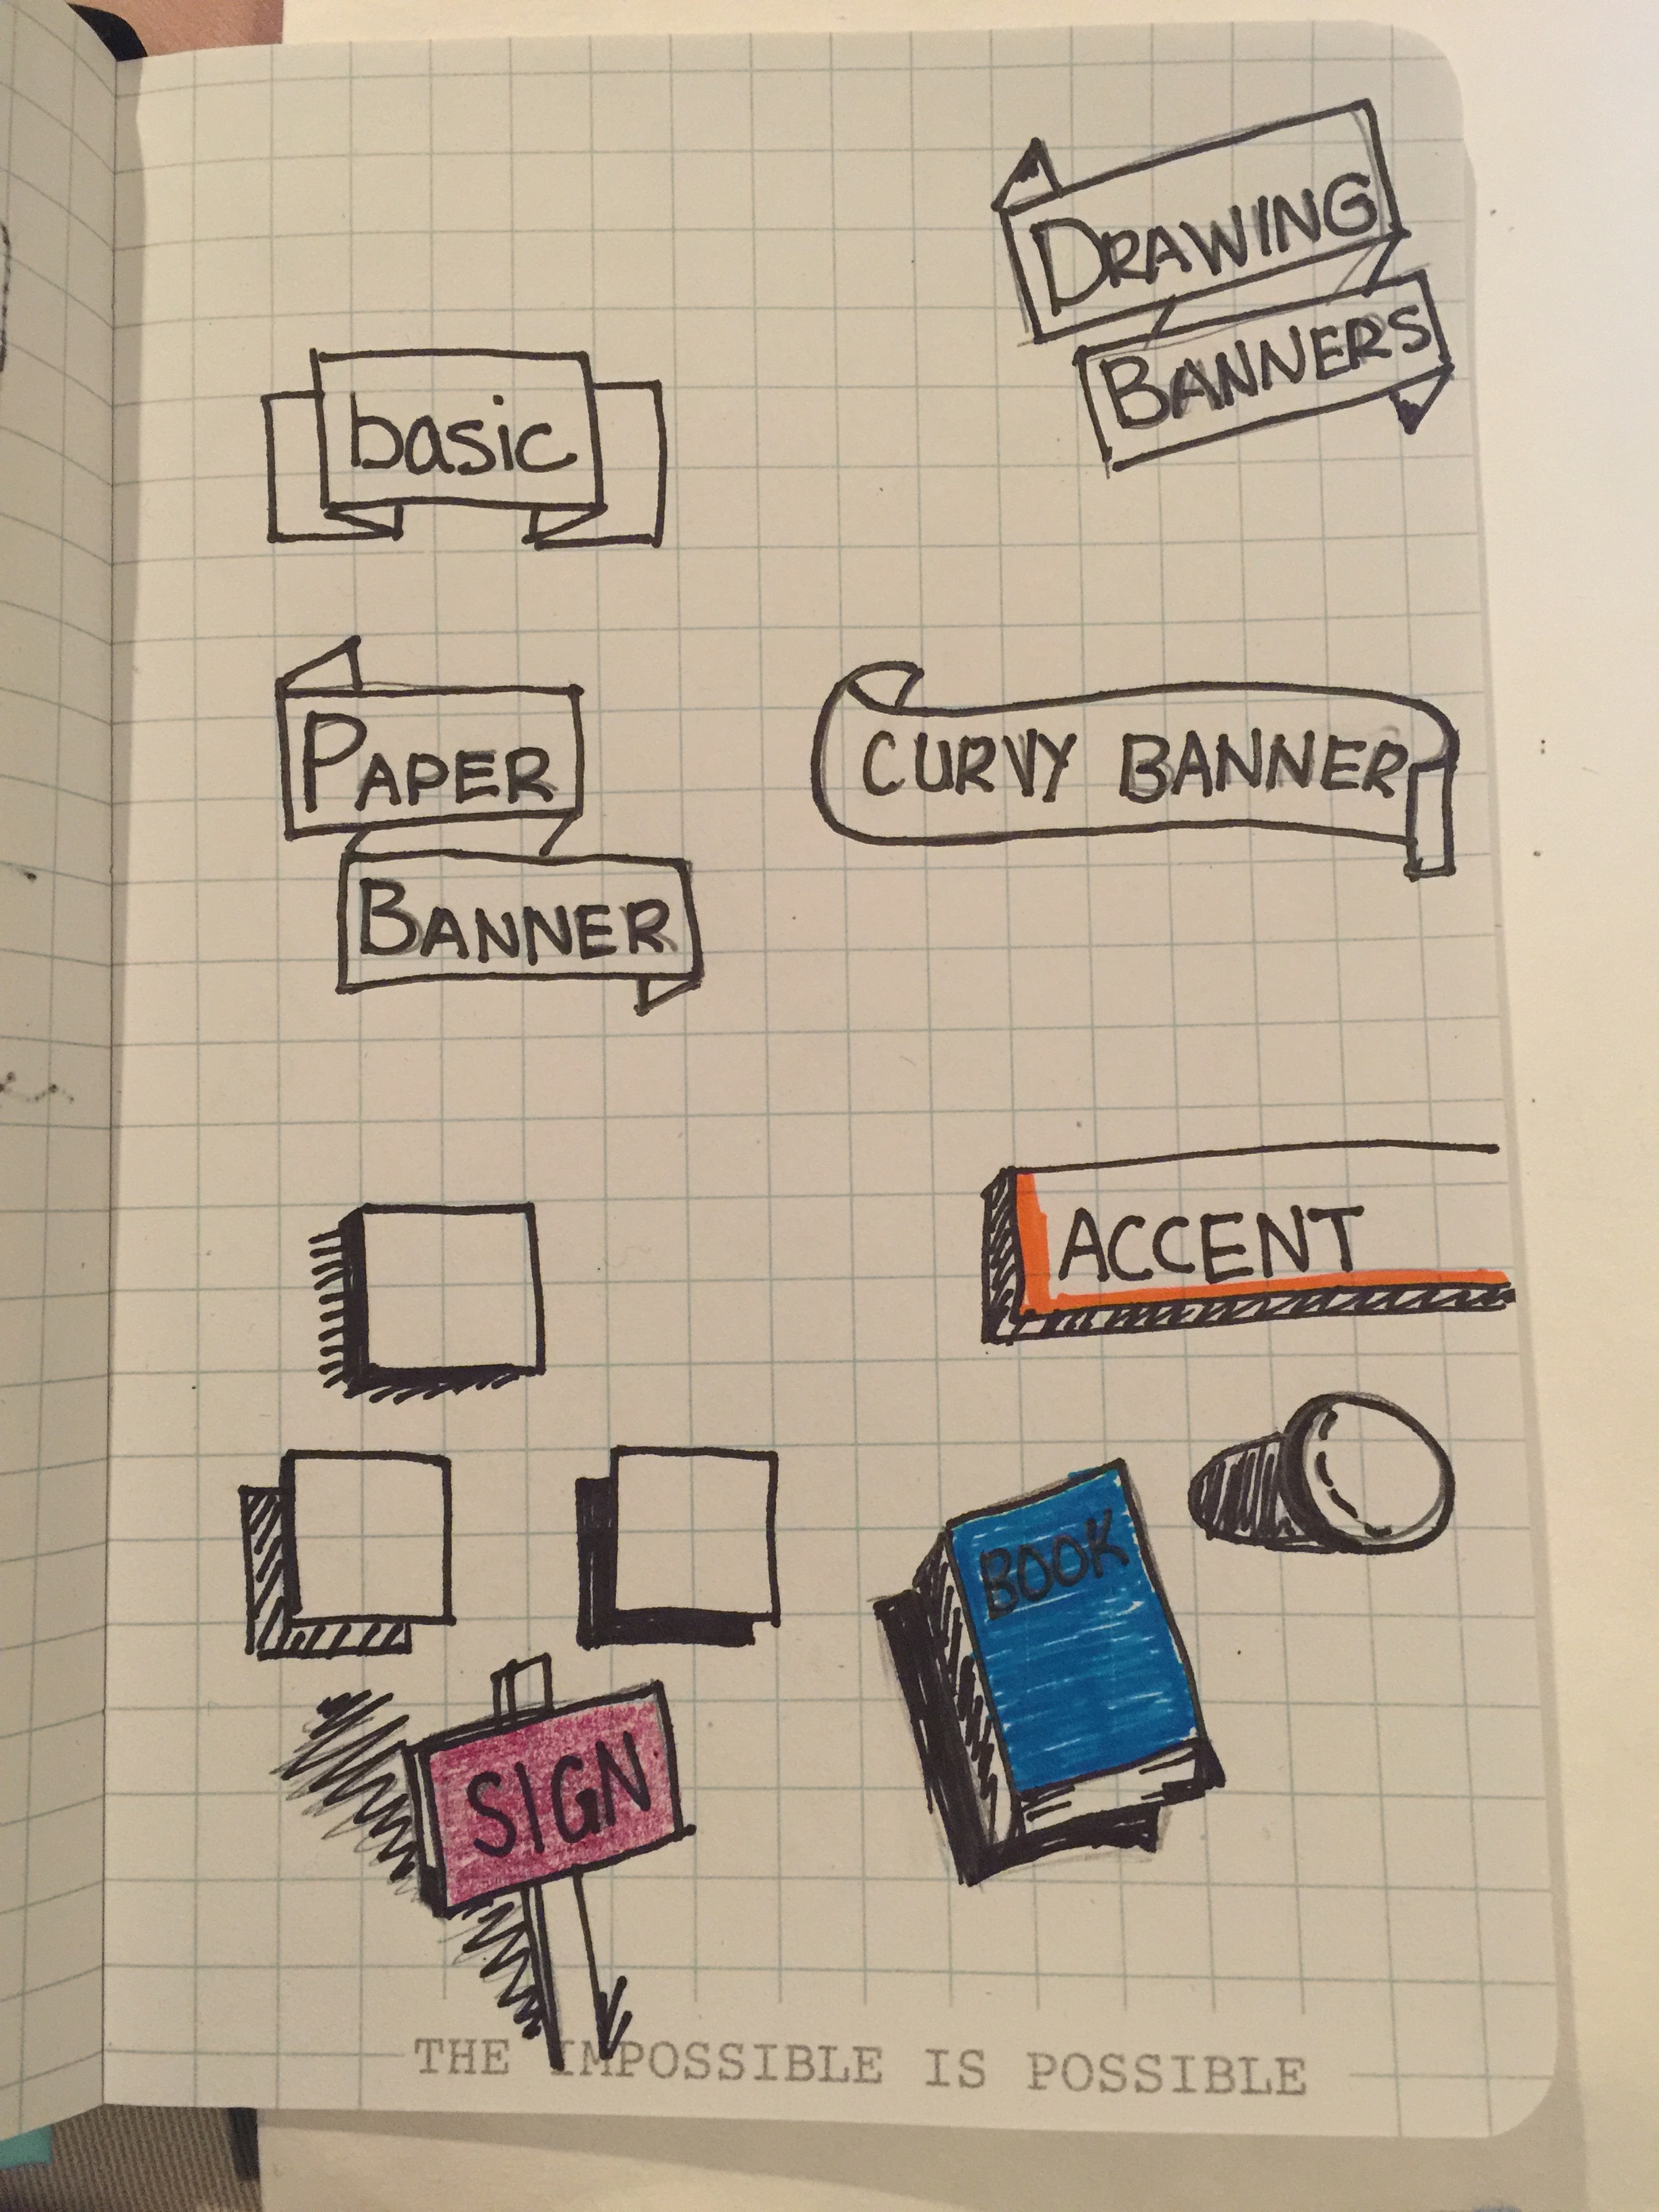 DRAWING
BANNERS
basic
PAPER
BANNER
CURVY BANNER
ACCENT
BOOK
SIGN
THE IMPOSSIBLE IS POSSIBLE